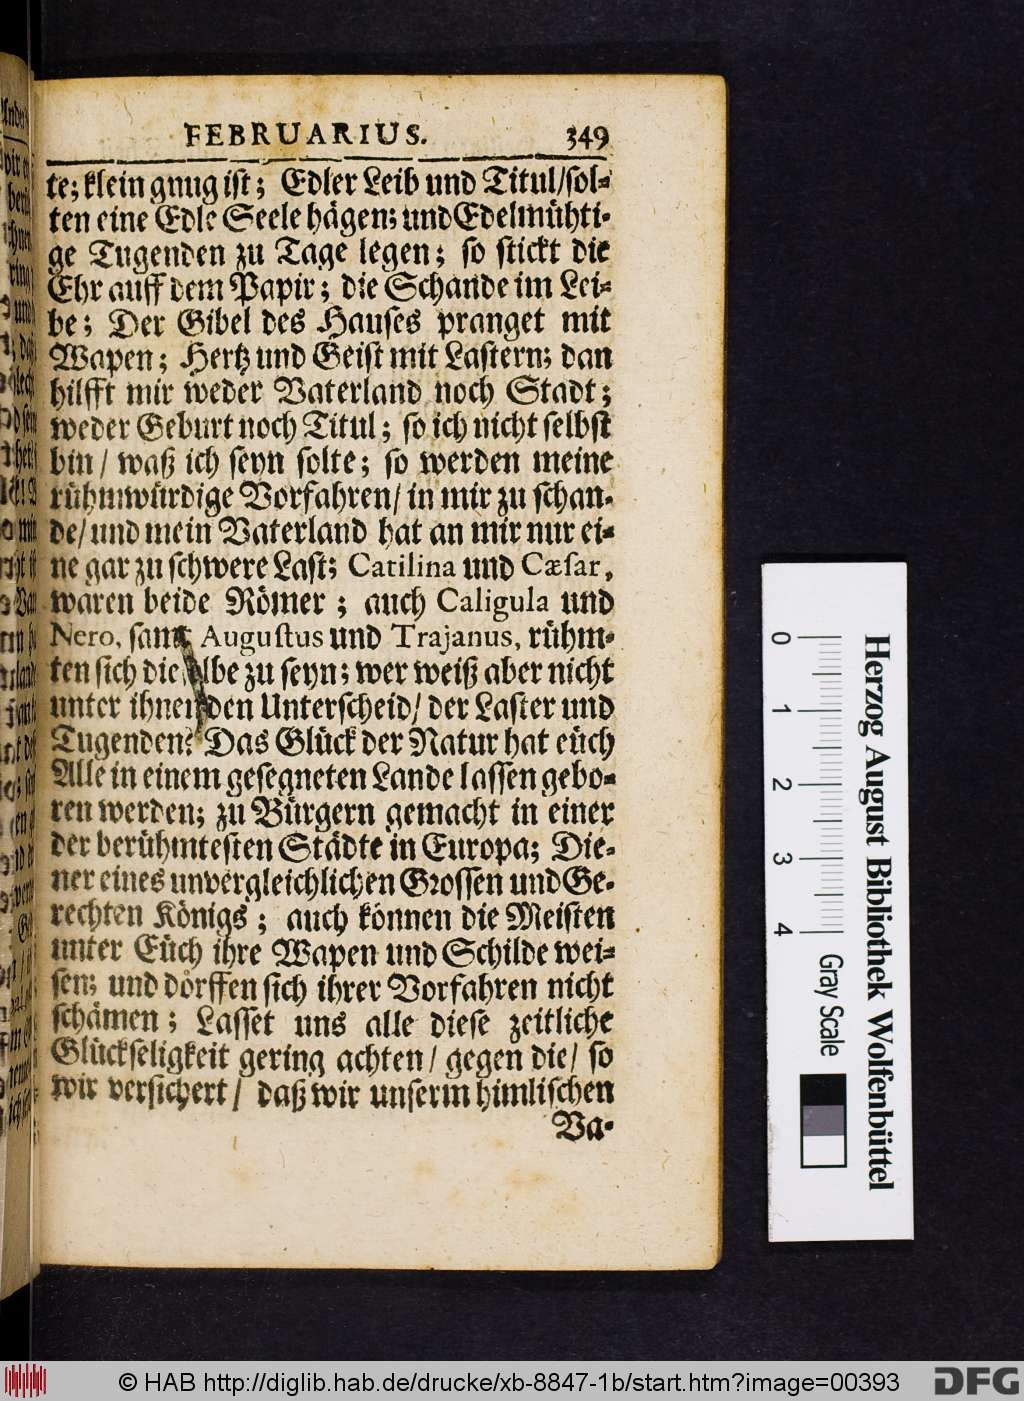 FEBRUARIUS. 349
te; klein gnug ist; Edler Leib und Titul/sol-
ten eine Edle Seele hägen; und Edelmühti-
ge Tugenden zu Tage legen; so stickt die
Ehr auff dem Papir; die Schande im Lei-
be; Der Gibel des Hauses pranget mit
Wapen; Hertz und Geist mit Lastern; dan
hilfft mir weder Vaterland noch Stadt;
weder Geburt noch Titul; so ich nicht selbst
bin/ waß ich seyn solte; so werden meine
rühmwürdige Vorfahren/ in mir zu schan-
de/ und mein Vaterland hat an mir nur ei-
ne gar zu schwere Last; Catilina und Cæsar,
waren beide Römer; auch Caligula und
Nero, samt Augustus und Trajanus, rühm-
ten sich dieselbe zu seyn; wer weiß aber nicht
unter ihnen den Unterscheid/ der Laster und
Tugenden? Das Glück der Natur hat eüch
Alle in einem gesegneten Lande lassen gebo-
ren werden; zu Bürgern gemacht in einer
der berühmtesten Städte in Europa; Die-
ner eines unvergleichlichen Grossen und Ge-
rechten Königs; auch können die Meisten
unter Eüch ihre Wapen und Schilde wei-
sen; und dörffen sich ihrer Vorfahren nicht
schämen; Lasset uns alle diese zeitliche
Glückseligkeit gering achten/ gegen die/ so
wir versichert/ daß wir unserm himlischen
Va-
0 1 2 3 4
Gray Scale
Herzog August Bibliothek Wolfenbüttel
© HAB http://diglib.hab.de/drucke/xb-8847-1b/start.htm?image=00393
DFG